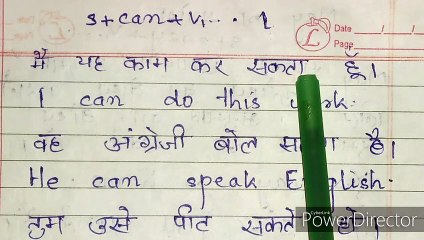 S + can + V₁ .. . 1
Date
Page
मैं यह काम कर सकता हूँ।
I can do this work.
वह अंग्रेजी बोल सकता है।
He can speak English.
तुम उसे पीट सकते हो।
CyberLink
PowerDirector